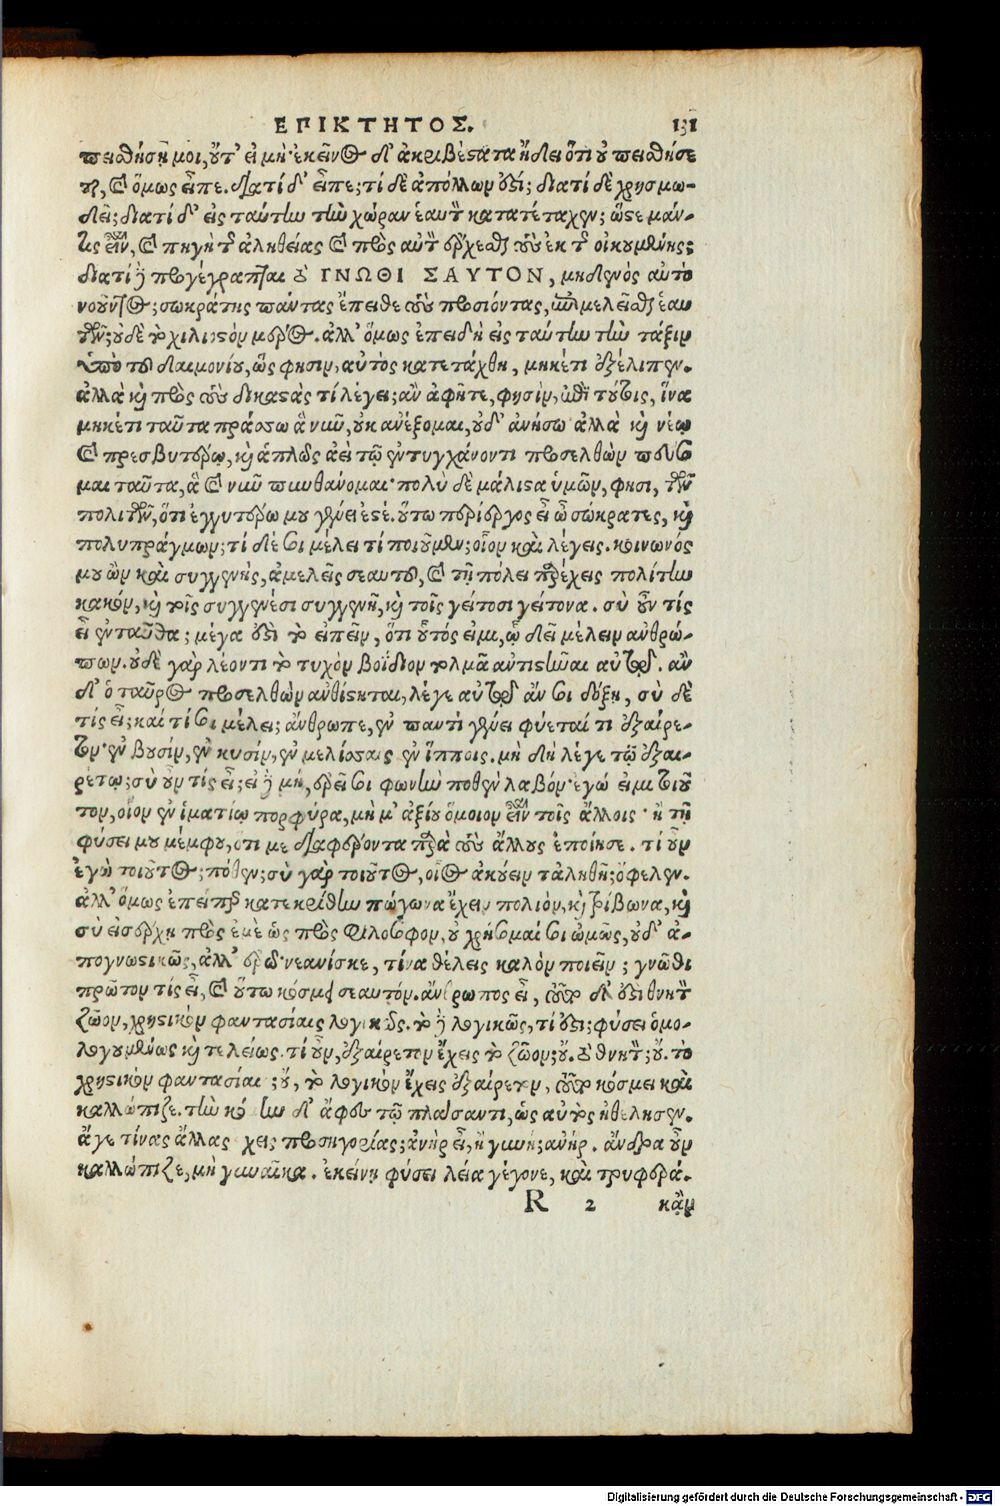 ΕΠΙΚΤΗΤΟΣ. 131
πειθήσῃ μοι, οὔτ' εἰ μή· ἐκεῖνος δ' ἀκριβέστατα ᾔδει ὅτι οὐ πειθήσε
ται, καὶ ὅμως εἶπε. διατί δ' εἶπε; τί δὲ ἀπόλλων ἐστί; διατί δὲ χρησμω-
δεῖ; διατί δ' εἰς ταύτην τὴν χώραν ἑαυτὸν κατατέταχεν; ὥστε μάν-
τις εἶναι, καὶ πηγὴ τῆς ἀληθείας καὶ πρὸς αὐτὸν ἔρχεσθαι τοὺς ἐκ τῆς οἰκουμένης;
διατί δὲ προγέγραπται τὸ ΓΝΩΘΙ ΣΑΥΤΟΝ, μηδενὸς αὐτὸ
νοοῦντος; σωκράτης πάντας ἔπειθε τοὺς προσιόντας, ἐπιμελεῖσθαι ἑαυ
τῶν; οὐδὲ τὸ χιλιοστὸν μέρος. ἀλλ' ὅμως ἐπειδὴ εἰς ταύτην τὴν τάξιν
ὑπὸ τοῦ δαιμονίου, ὥς φησιν, αὐτὸς κατετάχθη, μηκέτι ἐξέλιπεν.
ἀλλὰ καὶ πρὸς τοὺς δικαστὰς τί λέγει; ἂν ἀφῆτε, φησὶν, ἐπὶ τούτοις, ἵνα
μηκέτι ταῦτα πράσσω ἃ νῦν, οὐκ ἀνέξομαι, οὐδ' ἀνήσω ἀλλὰ καὶ νέῳ
καὶ πρεσβυτέρῳ, καὶ ἁπλῶς ἀεὶ τῷ ἐντυγχάνοντι προσελθὼν πεύσο
μαι ταῦτα, ἃ καὶ νῦν πυνθάνομαι· πολὺ δὲ μάλιστα ὑμῶν, φησι, τῶν
πολιτῶν, ὅτι ἐγγυτέρω μου γένει ἐστέ. οὕτω περίεργος εἶ ὦ σώκρατες, καὶ
πολυπράγμων; τί δέ σοι μέλει τί ποιοῦμεν; οἷον καὶ λέγεις. κοινωνός
μου ὢν καὶ συγγενής, ἀμελεῖς σεαυτοῦ, καὶ τῇ πόλει παρέχεις πολίτην
κακόν, καὶ τοῖς συγγενέσι συγγενῆ, καὶ τοῖς γείτοσι γείτονα. σὺ οὖν τίς
εἶ ἐνταῦθα; μέγα ἐστὶ τὸ εἰπεῖν, ὅτι οὗτός εἰμι, ᾧ δεῖ μέλειν ἀνθρώ-
πων. οὐδὲ γὰρ λέοντι τὸ τυχὸν βοΐδιον τολμᾷ ἀντιστῆναι αὐτῷ. ἂν
δ' ὁ ταῦρος προσελθὼν ἀνθίστηται, λέγε αὐτῷ ἄν σοι δόξῃ, σὺ δὲ
τίς εἶ; καί τί σοι μέλει; ἄνθρωπε, ἐν παντὶ γένει φύεταί τι ἐξαίρε-
τον· ἐν βουσίν, ἐν κυσίν, ἐν μελίσσαις ἐν ἵπποις. μὴ δὴ λέγε τῷ ἐξαι-
ρέτῳ; σὺ οὖν τίς εἶ; εἰ δὲ μή, ἐρεῖ σοι φωνὴν ποθὲν λαβόν· ἐγώ εἰμι τοιοῦ
τον, οἷον ἐν ἱματίῳ πορφύρα, μή μ' ἀξίου ὅμοιον εἶναι τοῖς ἄλλοις· ἢ τῇ
φύσει μου μέμφου, ὅτι με διαφέροντα παρὰ τοὺς ἄλλους ἐποίησε. τί οὖν
ἐγὼ τοιοῦτος; πόθεν; σὺ γὰρ τοιοῦτος, οἷος ἀκούειν τἀληθῆ; ὄφελεν.
ἀλλ' ὅμως ἐπεί πως κατεκρίθην πώγωνα ἔχειν πολιόν, καὶ τρίβωνα, καὶ
σὺ εἰσέρχῃ πρὸς ἐμὲ ὡς πρὸς φιλόσοφον, οὐ χρήσομαί σοι ὠμῶς, οὐδ' ἀ-
πογνωστικῶς, ἀλλ' ἐρῶ· νεανίσκε, τίνα θέλεις καλὸν ποιεῖν; γνῶθι
πρῶτον τίς εἶ, καὶ οὕτω κόσμει σεαυτόν. ἄνθρωπος εἶ, τοῦτο δ' ἐστὶ θνητὸν
ζῶον, χρηστικὸν φαντασίαις λογικῶς. τὸ δὲ λογικῶς, τί ἐστι; φύσει ὁμο-
λογουμένως καὶ τελείως. τί οὖν, ἐξαίρετον ἔχεις τὸ ζῶον; οὔ. τὸ θνητόν; οὔ. τὸ
χρηστικὸν φαντασίαι; οὔ, τὸ λογικὸν ἔχεις ἐξαίρετον, τοῦτο κόσμει καὶ
καλλώπιζε. τὴν κό ην δ' ἄφες τῷ πλάσαντι, ὡς αὐτὸς ἠθέλησεν.
ἄγε τίνας ἄλλας χεις προσηγορίας; ἀνὴρ εἶ, ἢ γυνή; ἀνήρ. ἄνδρα οὖν
καλλώπιζε, μὴ γυναῖκα. ἐκείνη φύσει λεία γέγονε, καὶ τρυφερά.
R 2 κἂν
Digitalisierung gefördert durch die Deutsche Forschungsgemeinschaft - DFG